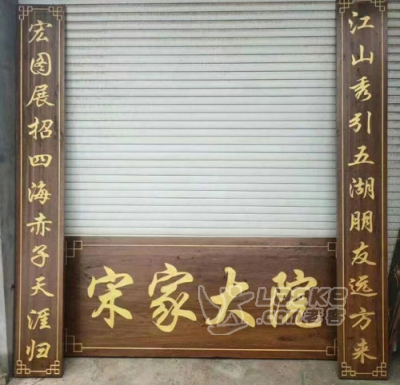 江山秀引五湖朋友远方来
宏图展招四海赤子天涯归
宋家大院